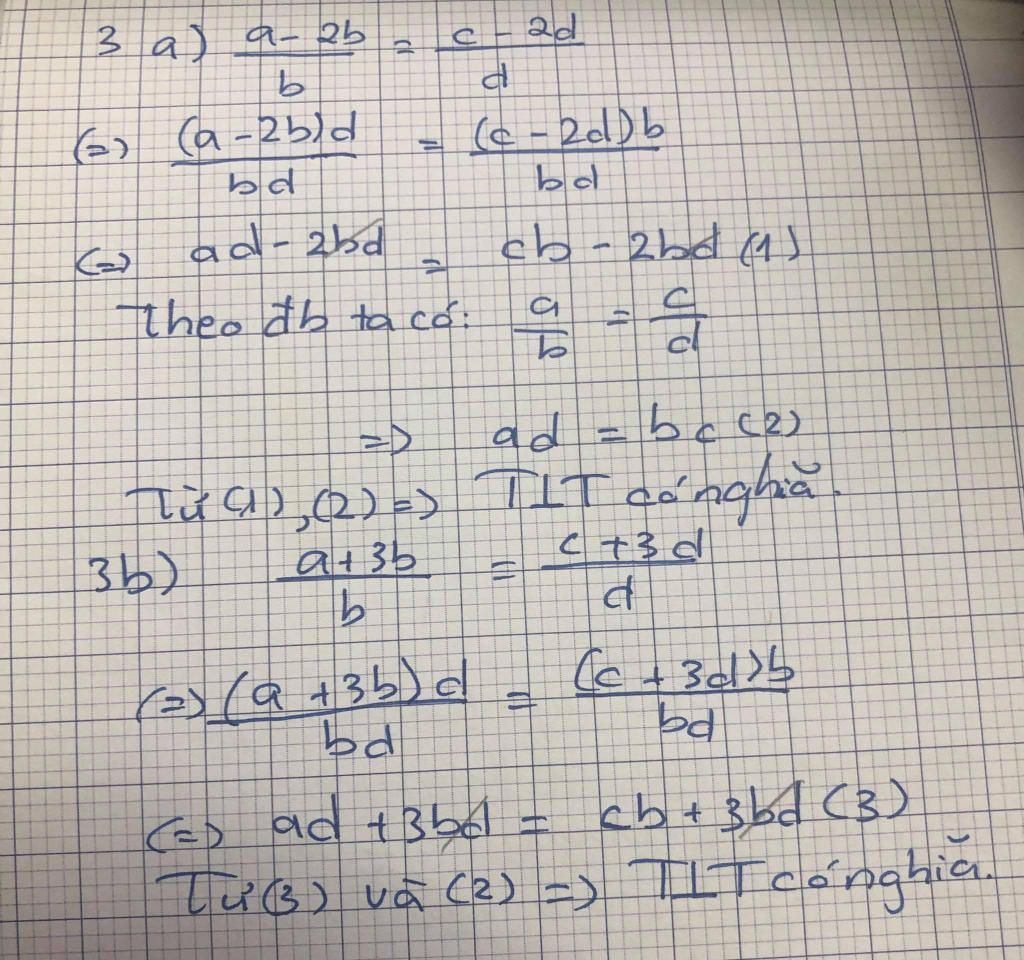 3 a) (a - 2b)/b = (c - 2d)/d
(=) (a - 2b)d/bd = (c - 2d)b/bd
(=) ad - 2bd = cb - 2bd (1)
Theo đb ta có: a/b = c/d
=> ad = bc (2)
Từ (1), (2) => TLT có nghiã.
3b) (a + 3b)/b = (c + 3d)/d
(=) (a + 3b)d/bd = (c + 3d)b/bd
(=) ad + 3bd = cb + 3bd (3)
Từ (3) và (2) => TLT có nghiã.